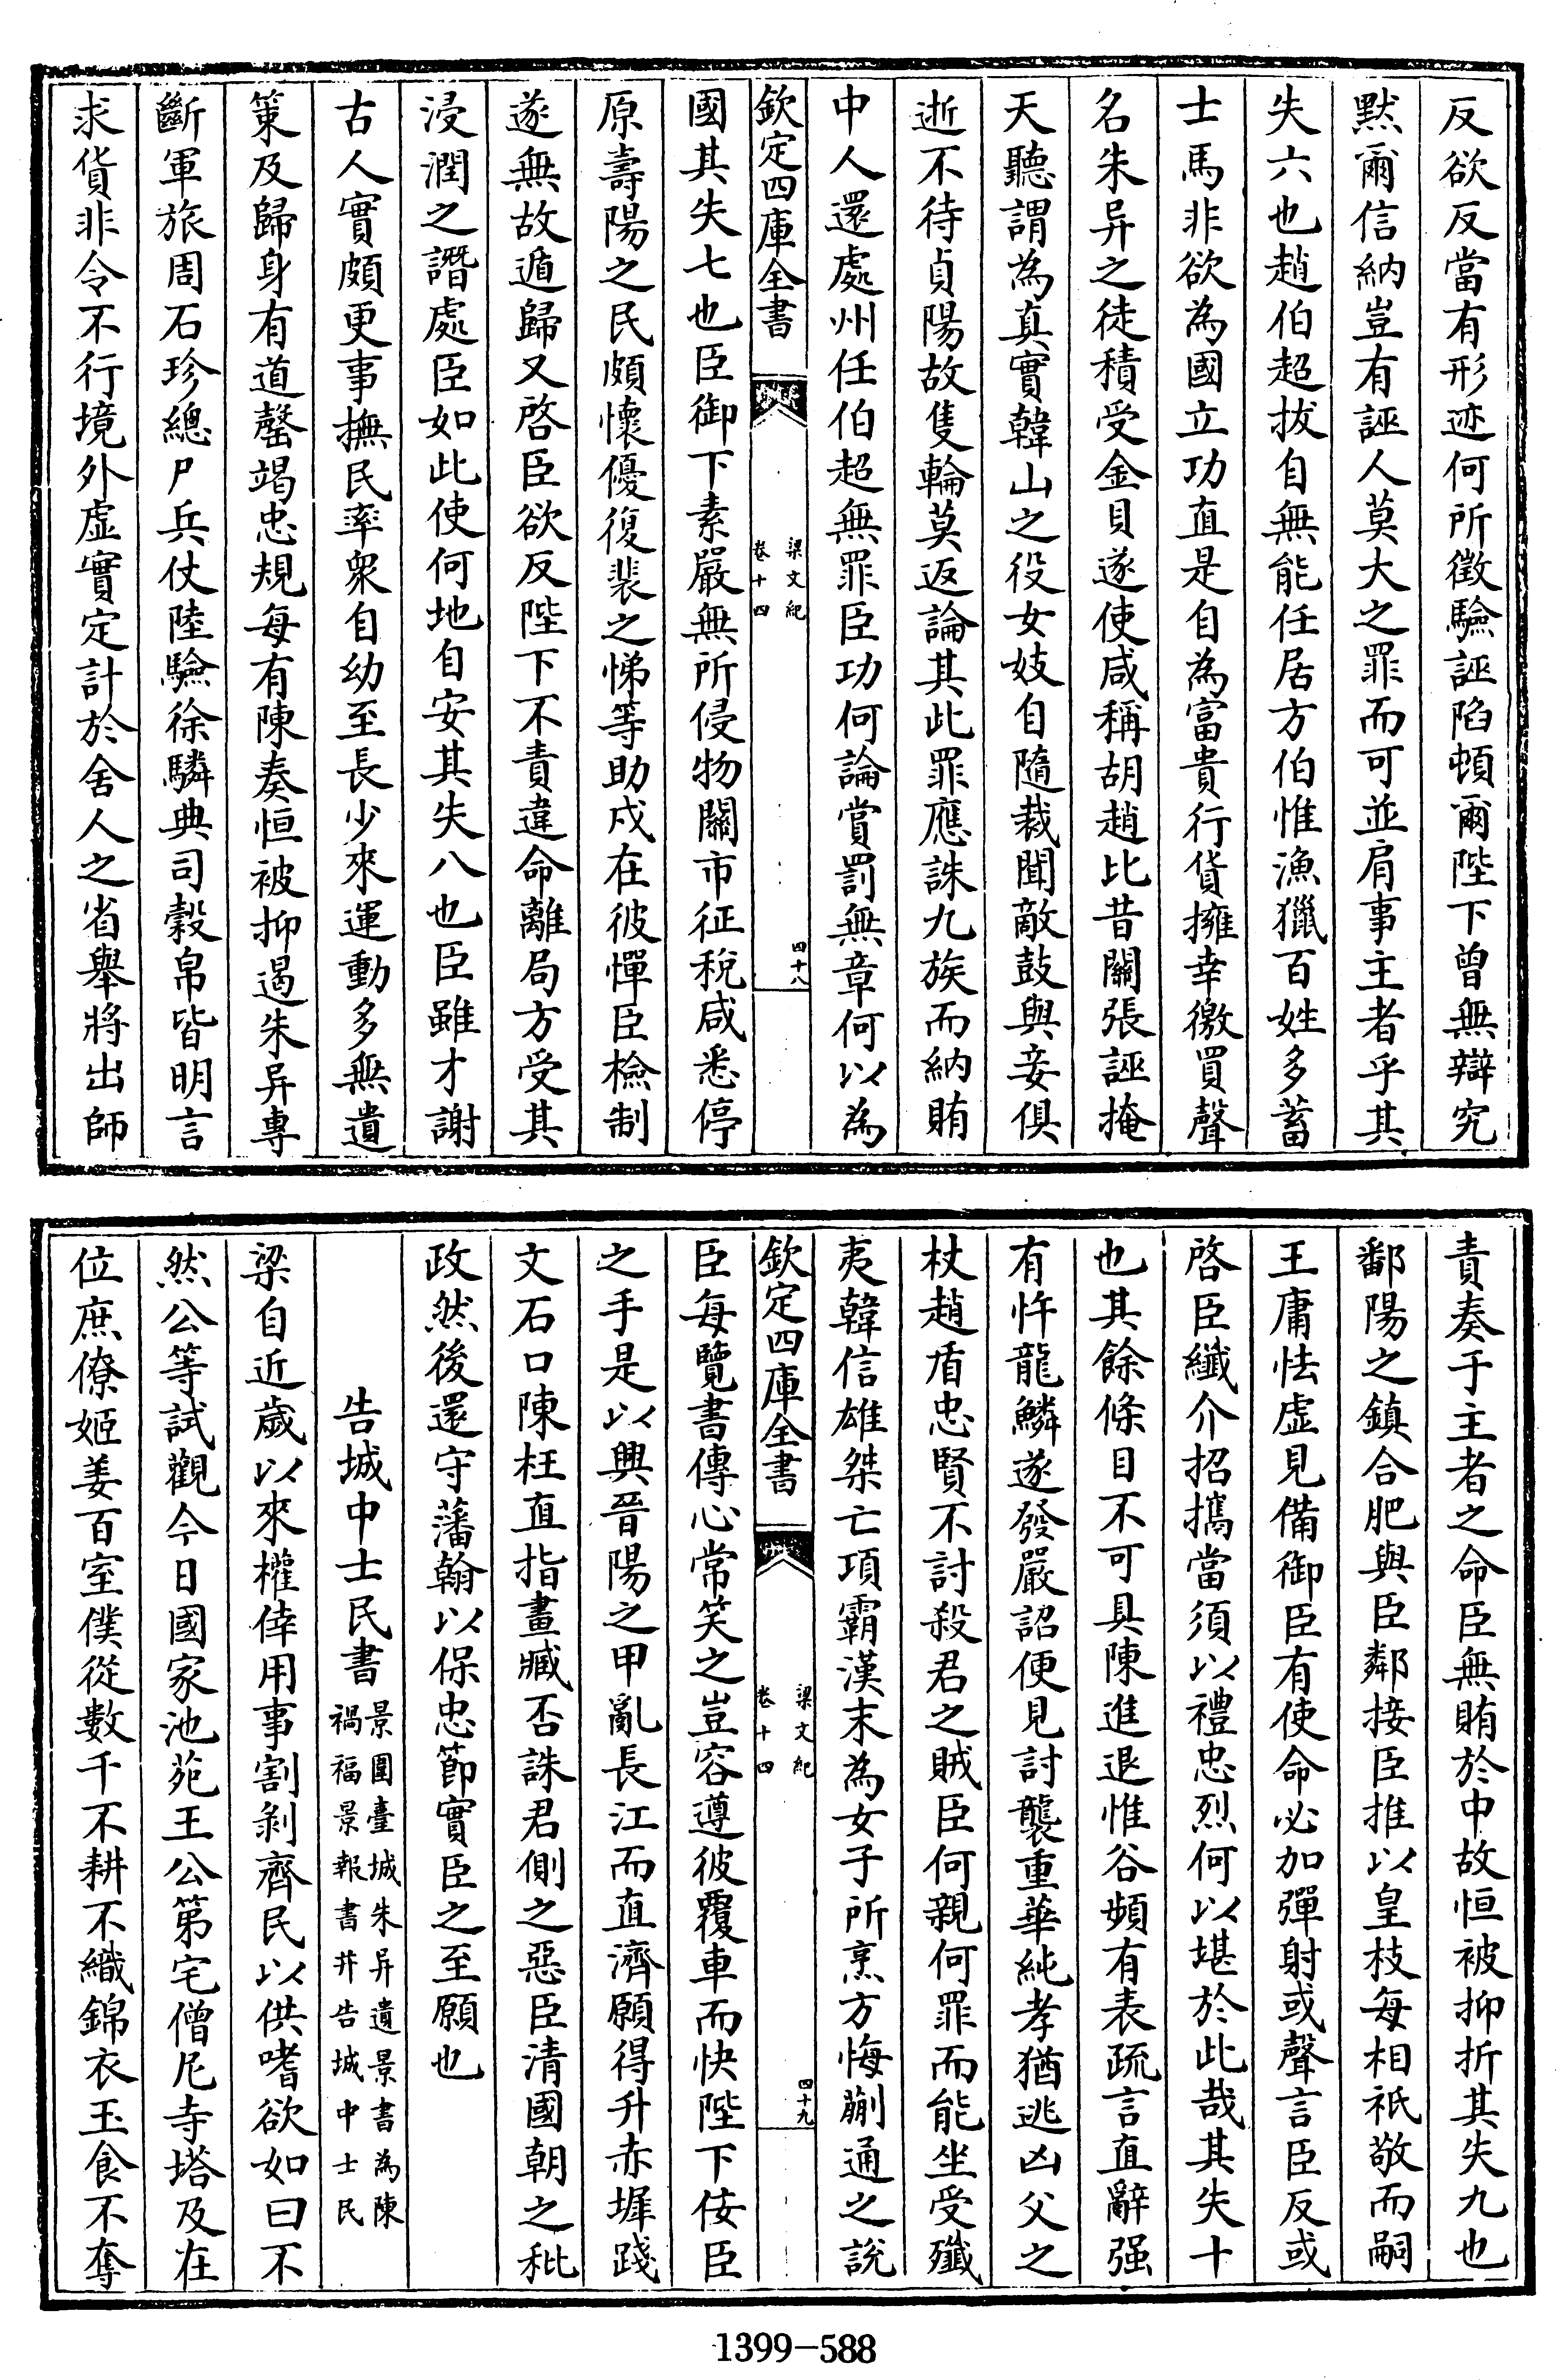 反欲反當有形迹何所徵驗誣陷頓爾陛下曾無辯究
黙爾信納豈有誣人莫大之罪而可並肩事主者乎其
失六也趙伯超拔自無能任居方伯惟漁獵百姓多蓄
士馬非欲為國立功直是自為富貴行貨擁幸徼買聲
名朱异之徒積受金貝遂使咸稱胡趙比昔關張誣掩
天聽謂為真實韓山之役女妓自隨裁聞敵鼓與妾俱
逝不待貞陽故隻輪莫返論其此罪應誅九族而納賄
中人還處州任伯超無罪臣功何論賞罰無章何以為
欽定四庫全書
梁文紀
卷十四
四十八
國其失七也臣御下素嚴無所侵物關市征稅咸悉停
原壽陽之民頗懷優復裴之悌等助戍在彼憚臣檢制
遂無故遁歸又啓臣欲反陛下不責違命離局方受其
浸潤之譖處臣如此使何地自安其失八也臣雖才謝
古人實頗更事撫民率衆自幼至長少來運動多無遺
策及歸身有道罄竭忠規每有陳奏恒被抑遏朱异專
斷軍旅周石珍總尸兵仗陸驗徐驎典司穀帛皆明言
求貨非令不行境外虛實定計於舍人之省舉將出師
責奏于主者之命臣無賄於中故恒被抑折其失九也
鄱陽之鎮合肥與臣鄰接臣推以皇枝每相祇敬而嗣
王庸怯虛見備御臣有使命必加彈射或聲言臣反或
啓臣纖介招攜當須以禮忠烈何以堪於此哉其失十
也其餘條目不可具陳進退惟谷頻有表疏言直辭强
有忤龍鱗遂發嚴詔便見討襲重華純孝猶逃凶父之
杖趙盾忠賢不討殺君之賊臣何親何罪而能坐受殱
夷韓信雄桀亡項霸漢末為女子所烹方悔蒯通之說
欽定四庫全書
梁文紀
卷十四
四十九
臣每覽書傳心常笑之豈容遵彼覆車而快陛下佞臣
之手是以興晉陽之甲亂長江而直濟願得升赤墀踐
文石口陳枉直指畫臧否誅君側之惡臣清國朝之秕
政然後還守藩翰以保忠節實臣之至願也
告城中士民書
景圍臺城朱异遺景書為陳
禍福景報書幷告城中士民
梁自近歲以來權倖用事割剝齊民以供嗜欲如曰不
然公等試觀今日國家池苑王公第宅僧尼寺塔及在
位庶僚姬姜百室僕從数千不耕不織錦衣玉食不奪
1399-588